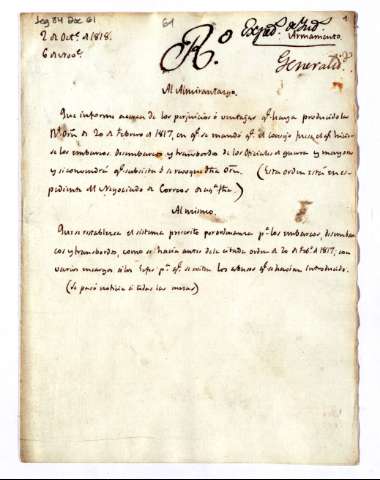 Leg 84 Doc 61
64
1
2 de Oct.e de 1818.
6 de
R.o
Exped.
de Ind.
Armamento
Generalid.d
Al Almirantazgo.
Que informe acerca de los perjuicios ó ventajas q.e haya producido la
R.l Orn. de 20 de Febrero de 1817, en q.e se mandó q.e el Consejo fuese el q.e hicie-
se los embarcos, desembarcos y transbordos de los Oficiales de guerra y mayores
y si convendrá q.e subsista ó se revoque dha Orn. (Esta orden está en es-
pediente del Negociado de Correos de fha.)
Al mismo.
Que se establezca el sistema prescrito por ordenanza p.a los embarcos, desembar-
cos y transbordos, como se hacia antes de la citada orden de 20 de Feb.o de 1817, con
varios encargos á los Gefes p.a q.e se eviten los abusos q.e se hacian introducido.
(Se pasó noticia á todas las mesas)